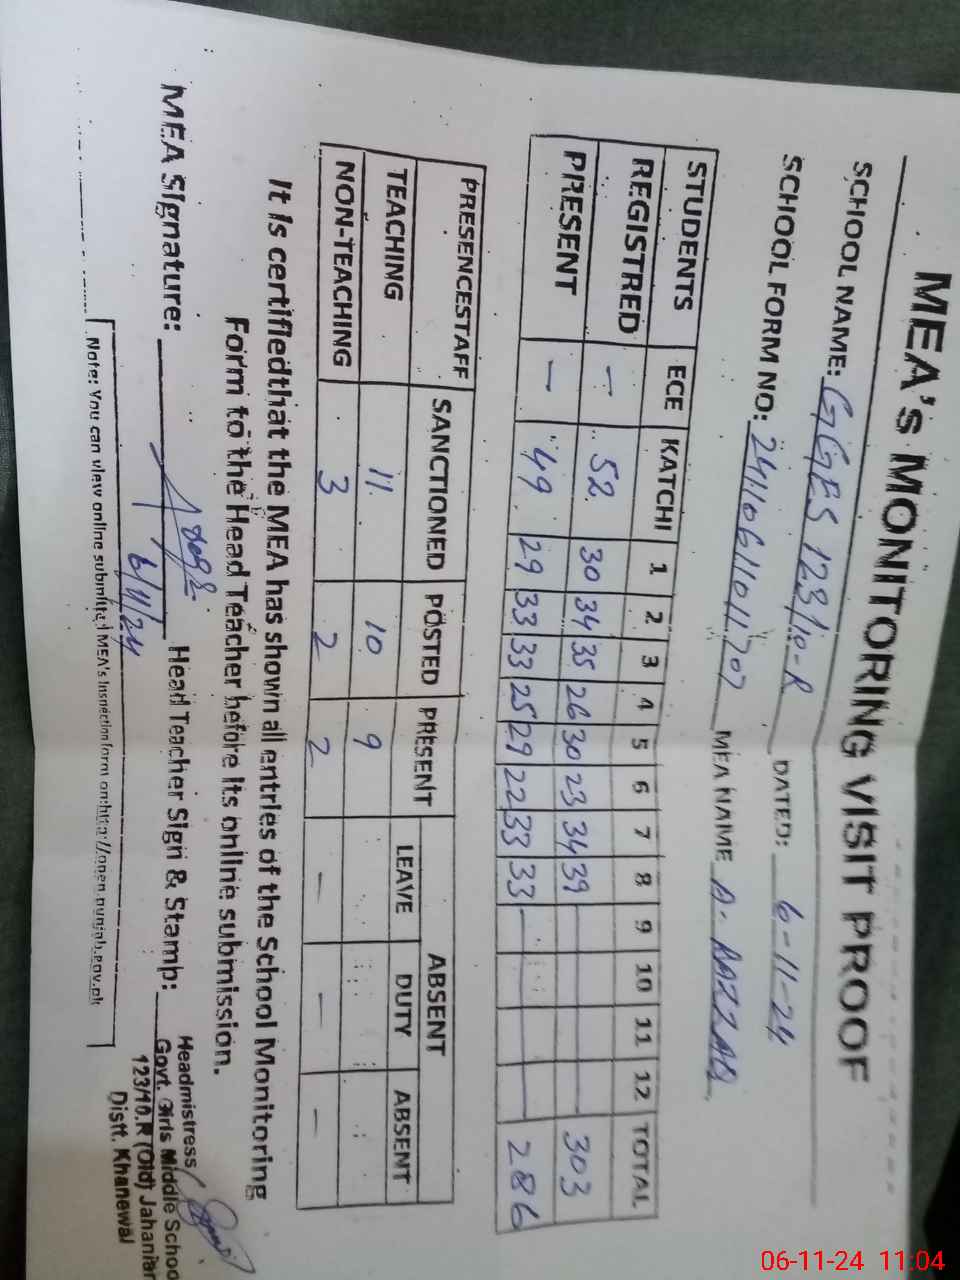 MEA'S MONITORING VISIT PROOF
SCHOOL NAME: GGES 123/10-R DATED: 6-11-24
SCHOOL FORM NO: MEA NAME A. RAZZAQ
STUDENTS ECE KATCHI 1 2 3 4 5 6 7 8 9 10 11 12 TOTAL
REGISTRED — 52 30 34 35 26 30 23 34 39 303
PRESENT — 49 29 33 33 25 29 22 33 33 286
PRESENCESTAFF SANCTIONED POSTED PRESENT ABSENT
LEAVE DUTY ABSENT
TEACHING 11 10 9
NON-TEACHING 3 2 2 — — —
It is certifiedthat the MEA has shown all entries of the School Monitoring
Form to the Head Teacher before its online submission.
MEA Signature: Head Teacher Sign & Stamp:
6/11/24
Headmistress
Govt. Girls Middle School
123/10.R (Old) Jahanian
Distt. Khanewal
Note: You can view online submitted MEA's Inspection form on:http://open.punjab.gov.pk
06-11-24 11:04